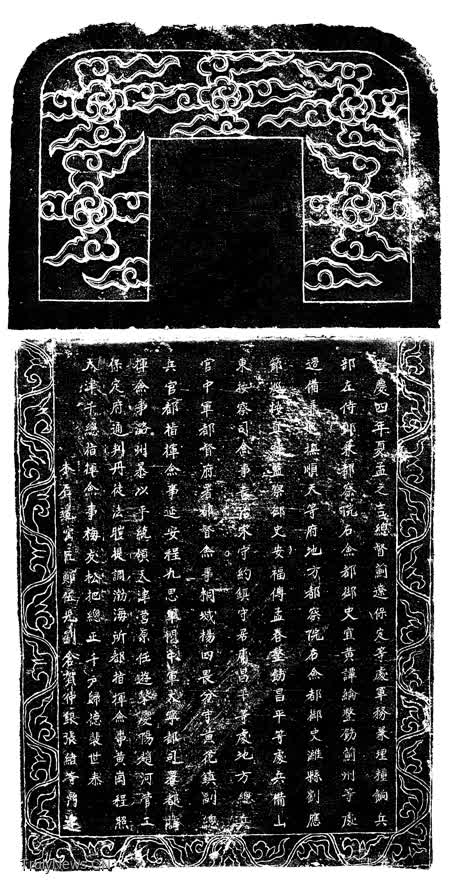 慶四年夏孟之吉總督薊遼保定等處軍務兼理糧餉兵
部左侍郎兼都察院右僉都御史宜黃譚綸整飭薊州等處
邊備兼巡撫順天等府地方都察院右僉都御史濰縣劉應
節巡按直隸監察御史安福傅孟春整飭昌平等處兵備山
東按察司僉事長治宋守約鎮守居庸昌平等處地方總兵
官中軍都督府署都督僉事桐城楊四畏分守黃花鎮副總
兵官都指揮僉事延安程九思軍門中軍大寧都司署都指
揮僉事潞州暴以平統領天津營原任遊擊慶陽趙河管工
保定府通判丹徒法體提調渤海所都指揮僉事黃岡程照
天津千總指揮僉事梅友松把總正千戶歸德裴世泰
匠鄭保劉倉賀仲銀張結等鼎建